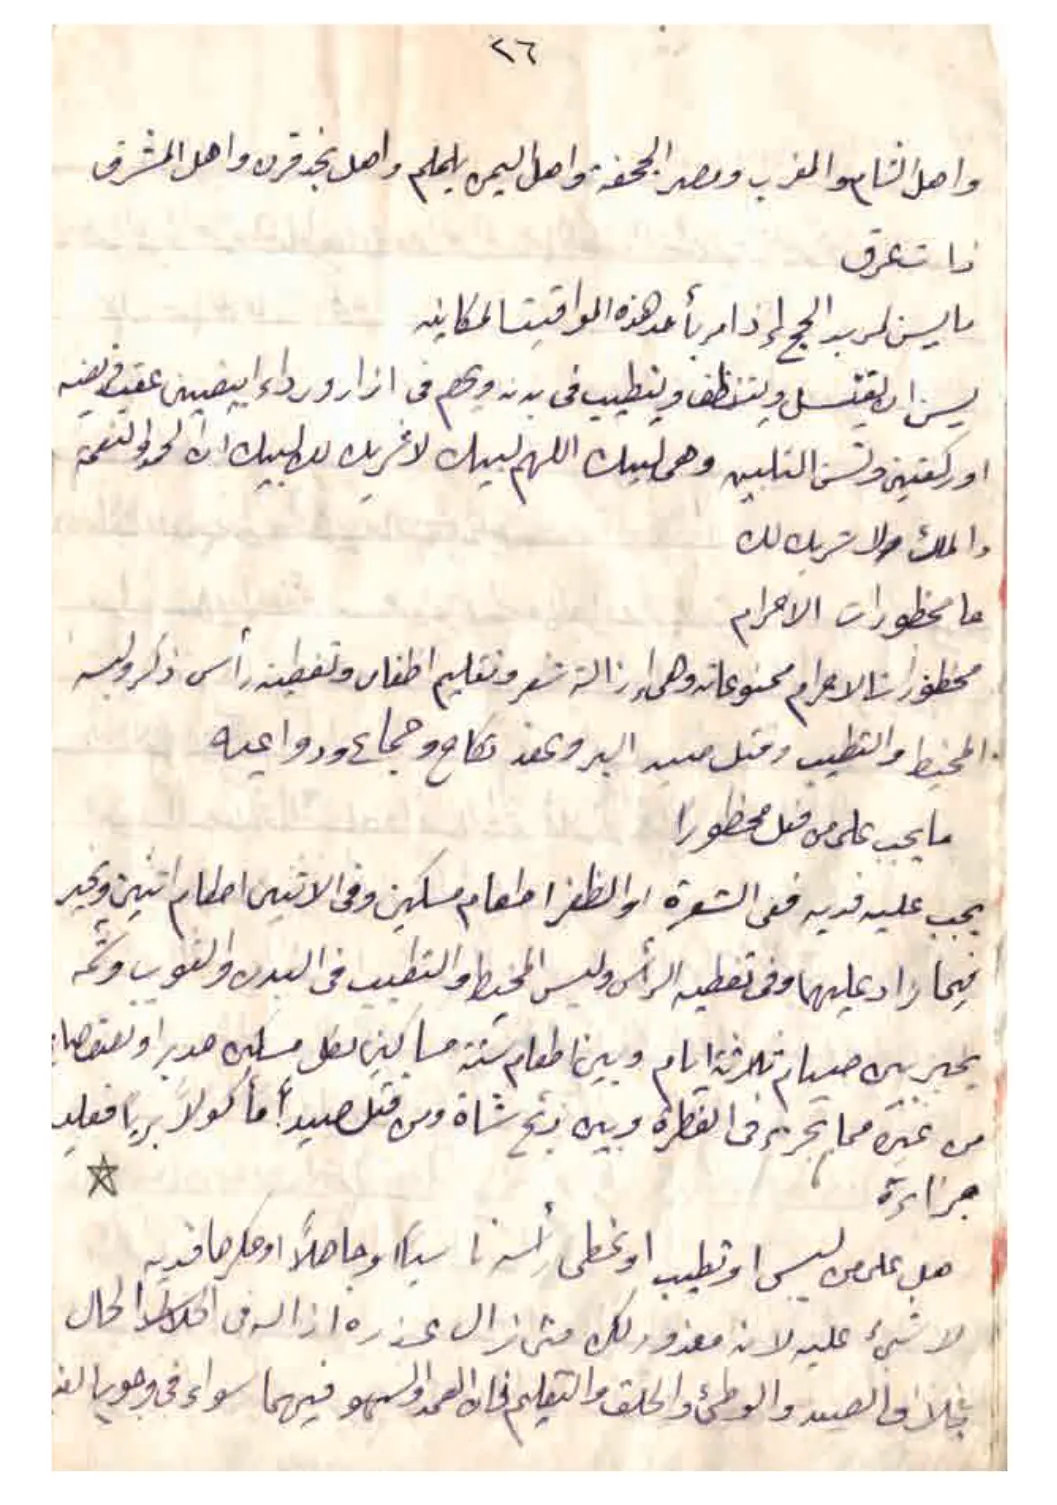 ٢٦
واهل الشام والمغرب ومصر الجحفة واهل اليمن يلملم واهل نجد قرن واهل المشرق
ذات عرق
ما يسن لمريد الحج إذا مر بأحد هذه المواقيت المكانيه
يسن ان يغتسل ويتنظف ويتطيب في بدنه ويحرم في ازار ورداء ابيضيين عقب فريضه
او ركعتين وتسن التلبيه وهي لبيك اللهم لبيك لا شريك لك لبيك ان الحمد والنعمة
والملك لا شريك لك
ما محظورات الاحرام
محظورات الاحرام ممنوعاته وهي إزالة شعر وتقليم اظفار وتغطيه رأس ذكر ولبسه
المخيط والتطيب وقتل صيد البر وعقد نكاح وجماع ودواعيه
ما يجب على من فعل محظورا
يجب عليه فديه ففي الشعرة او الظفر اطعام مسكين وفي الاثنين اطعام اثنين ويخير
فيما زاد عليهما وفي تغطيه الرأس ولبس المخيط والتطيب في البدن والثوب وشمه
يخير بين صيام ثلاثة ايام وبين اطعام ستة مساكين لكل مسكين مد بر او نصف صاع
من غيره مما يجزىء في الفطرة وبين ذبح شاة ومن قتل صيداً مأكولاً برياً فعليه
جزاءة
هل على من لبس او تطيب او غطى رأسه ناسياً او جاهلاً او مكرها فديه
لا شيء عليه لانه معذور لكن متى زال عذره ازاله في الحال
بخلاف الصيد والوطئ والحلق والتقليم فان العمد والسهو فيهما سواء في وجوب